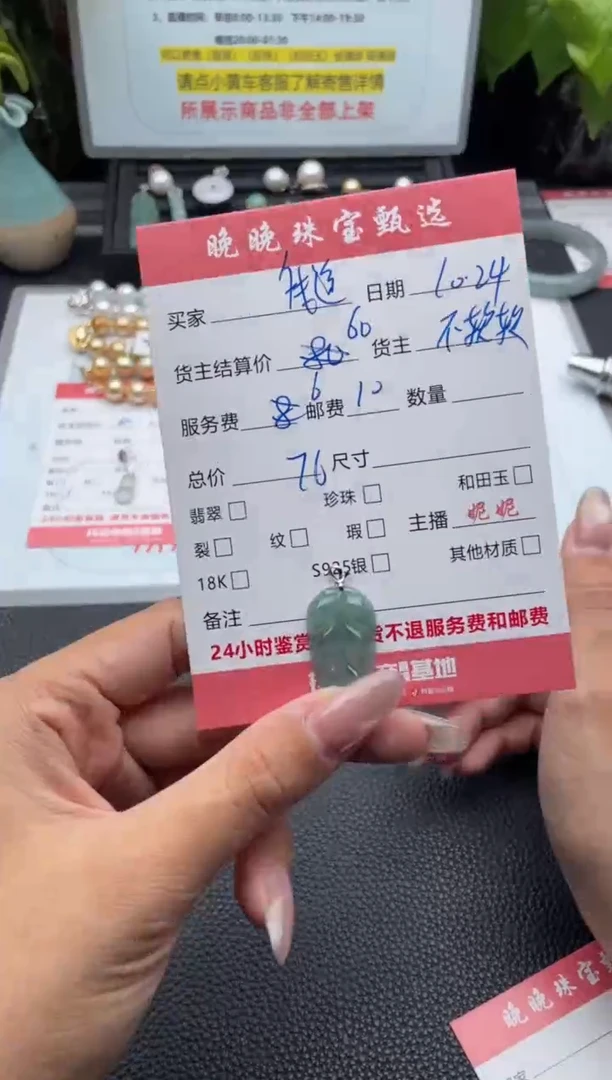 3、直播时间：早班8:00-13:30 下午14:00-19:30
晚班20:00-01:30
请点小黄车客服了解寄售详情
所展示商品非全部上架
晚晚珠宝甄选
买家 日期 10.24
货主结算价 60 货主 不软软
服务费 6 邮费 10 数量
总价 76 尺寸
翡翠 珍珠 和田玉
裂 纹 瑕 主播 妮妮
18K S925银 其他材质
备注
24小时鉴赏 货不退服务费和邮费
基地
晚晚珠宝